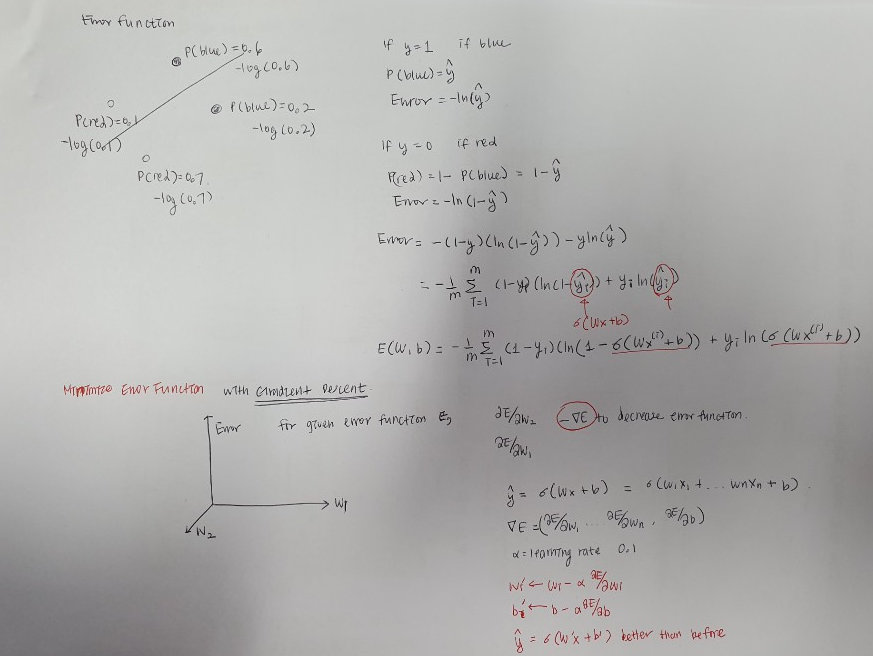 Error function
P(blue)=0.6
-log(0.6)
P(blue)=0.2
-log(0.2)
P(red)=0.1
-log(0.1)
P(red)=0.7
-log(0.7)
If y=1 if blue
P(blue)=ŷ
Error=-ln(ŷ)
If y=0 if red
P(red)=1-P(blue)=1-ŷ
Error=-ln(1-ŷ)
Error=-(1-y)(ln(1-ŷ))-yln(ŷ)
=-1/m Σ_{i=1}^{m} (1-yᵢ)(ln(1-ŷᵢ))+yᵢln(ŷᵢ)
σ(Wx+b)
E(W,b)=-1/m Σ_{i=1}^{m} (1-yᵢ)(ln(1-σ(Wx⁽ⁱ⁾+b))+yᵢln(σ(Wx⁽ⁱ⁾+b))
Minimize Error Function with Gradient Decent.
Error for given error function E,
W₁
W₂
∂E/∂W₂ -∇E to decrease error function.
∂E/∂W₁
ŷ=σ(Wx+b)=σ(W₁x₁+...wnxn+b).
∇E=(∂E/∂w₁...∂E/∂wn,∂E/∂b)
α=learning rate 0.1
wᵢ'←wᵢ-α∂E/∂wᵢ
b'←b-α∂E/∂b
ŷ=σ(W'x+b') better than before